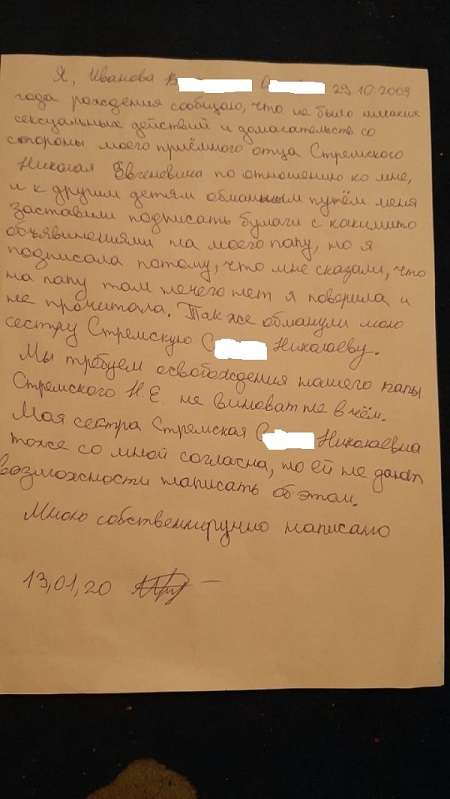 Я, Иванова В С 29.10.2009
года рождения сообщаю, что не было никаких
сексуальных действий и домогательств со
стороны моего приёмного отца Стремского
Николая Евгеневича по отношению ко мне,
и к другим детям обманным путём меня
заставили подписать бумаги с какимито
обявинениями на моего папу, но я
подписала потому, что мне сказали, что
на папу там нечего нет я поверила и
не прочитала. Так же обманули мою
сестру Стремскую С Николаеву.
Мы требуем освобождения нашего папы
Стремского Н.Е. не виноват не в чём.
Моя сестра Стремская С Николаевна
тоже со мной согласна, но ей не дают
возможности написать об этом.
Мною собственноручно написано
13,01,20